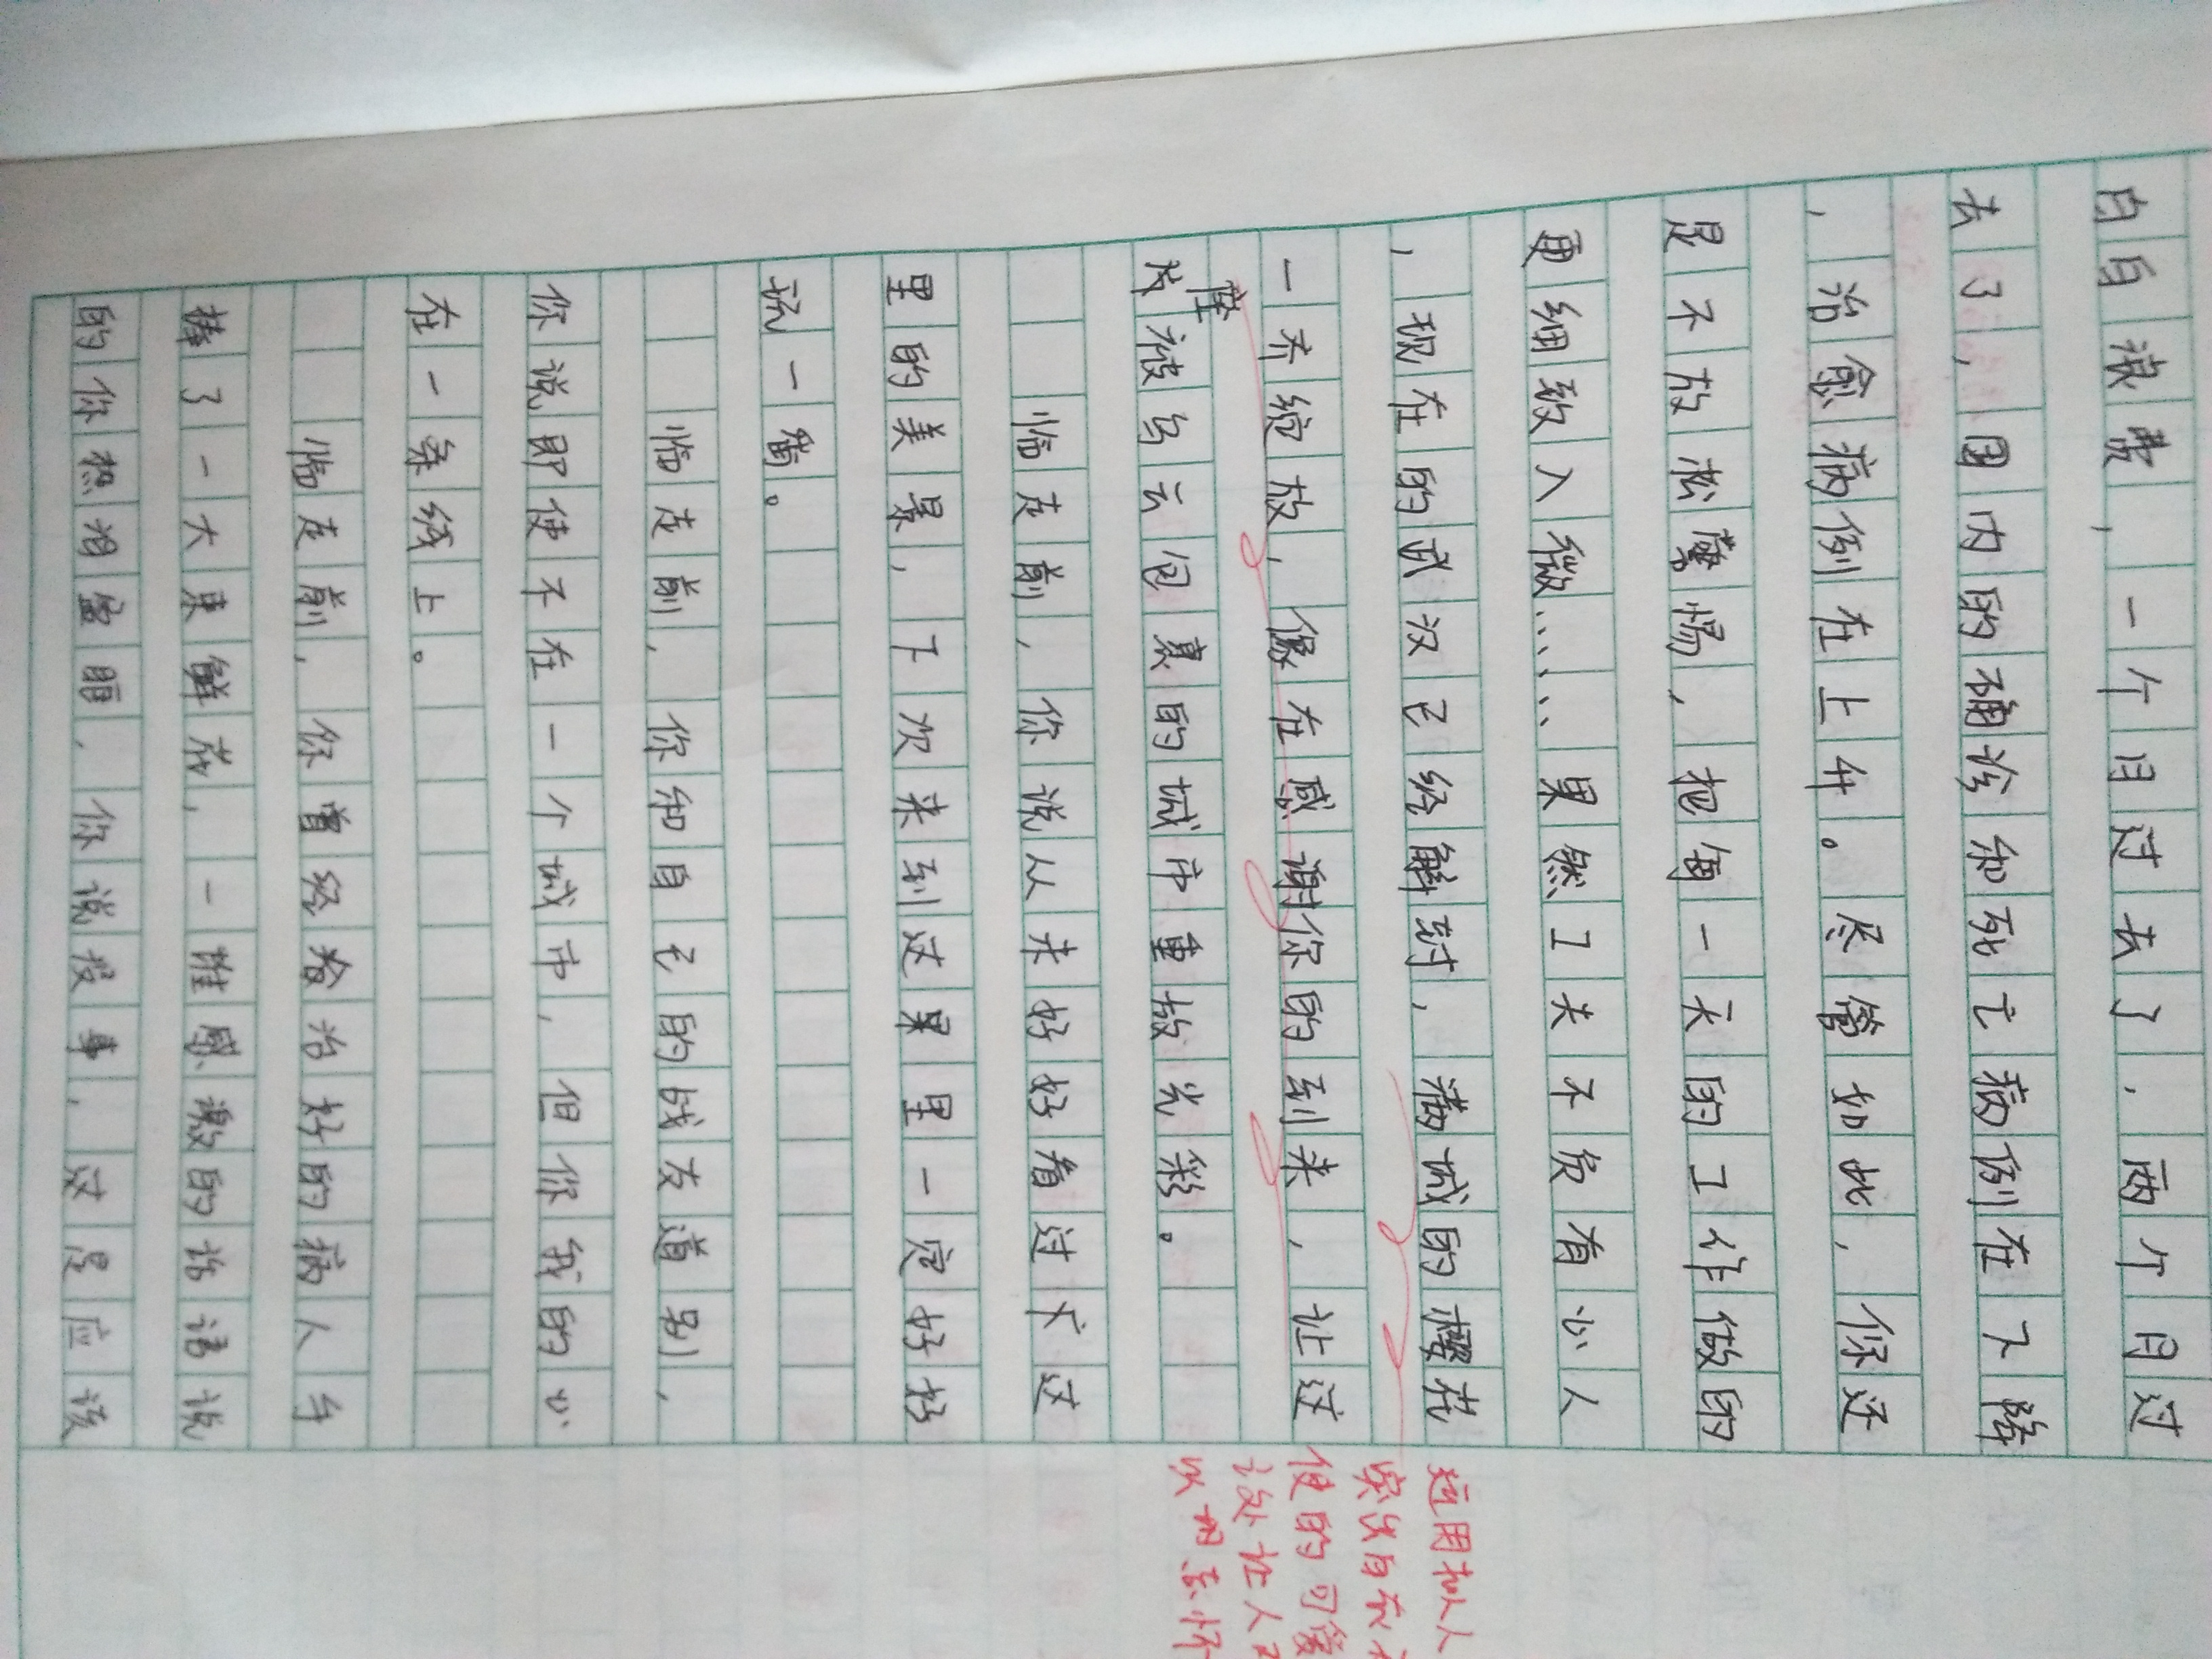 白白浪费,一个月过去了,两个月过
去了,国内的确诊和死亡病例在下降
,治愈病例在上升。尽管如此,你还
是不放松警惕,把每一天的工作做的
更细致入微……果然工夫不负有心人
,现在的武汉已经解封,满城的樱花
一齐绽放,像在感谢你的到来,让这
座
被乌云包裹的城市重放光彩。
临走前,你说从未好好看过这
里的美景,下次来到这里一定好好
玩一番。
临走前,你和自己的战友道别,
你说即使不在一个城市,但你我的心
在一条线上。
临走前,你曾经救治好的病人手
捧了一大束鲜花,一堆感激的话语说
的你热泪盈眶,你说没事,这是应该
运用拟人
突出白衣
使的可爱
该处让人